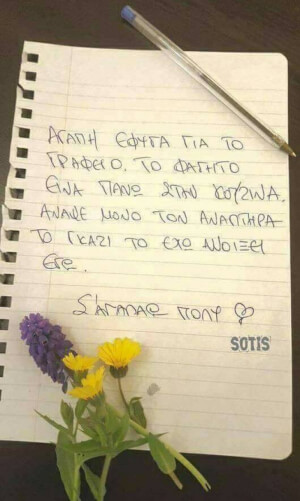 ΑΓΑΠΗ ΕΦΥΓΑ ΓΙΑ ΤΟ
ΓΡΑΦΕΙΟ. ΤΟ ΦΑΓΗΤΟ
ΕΙΝΑ ΠΑΝΩ ΣΤΗΝ ΚΟΥΖΙΝΑ.
ΑΝΑΨΕ ΜΟΝΟ ΤΟΝ ΑΝΑΠΤΗΡΑ
ΤΟ ΓΚΑΖΙ ΤΟ ΕΧΩ ΑΝΟΙΞΕΙ
ΕΓΩ.
Σ'ΑΓΑΠΑΩ ΠΟΛΥ ♡
SOTIS